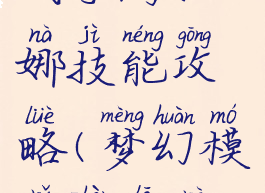 nà jì néng gōng
娜技能攻
lüè mèng huàn mó
略(梦幻模